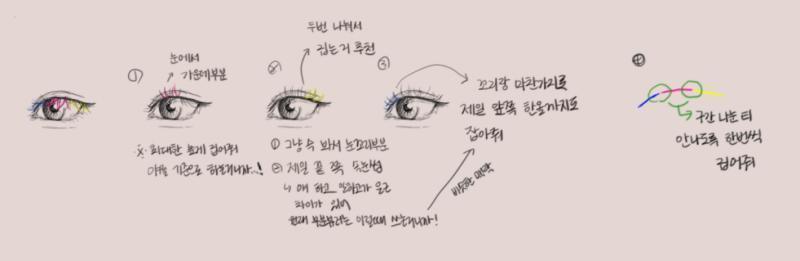 ①
눈에서
가운데부분
※ 최대한 높게 집어줘
기준으로 하는거니까..!
②
두번 나눠서
집는거 추천
① 그냥 속 봐서 눈꼬리부분
② 제일 끝 쪽 속눈썹
↳ 얘 하고 안하고가 은근
차이가 있어
부분뷰러는 이럴때 쓰는거니까!
③
꼬리랑 마찬가지로
제일 앞쪽 한올까지도
잡아줘
비슷한 맥락
④
구간 나눈 티
안나도록 한번씩
집어줘